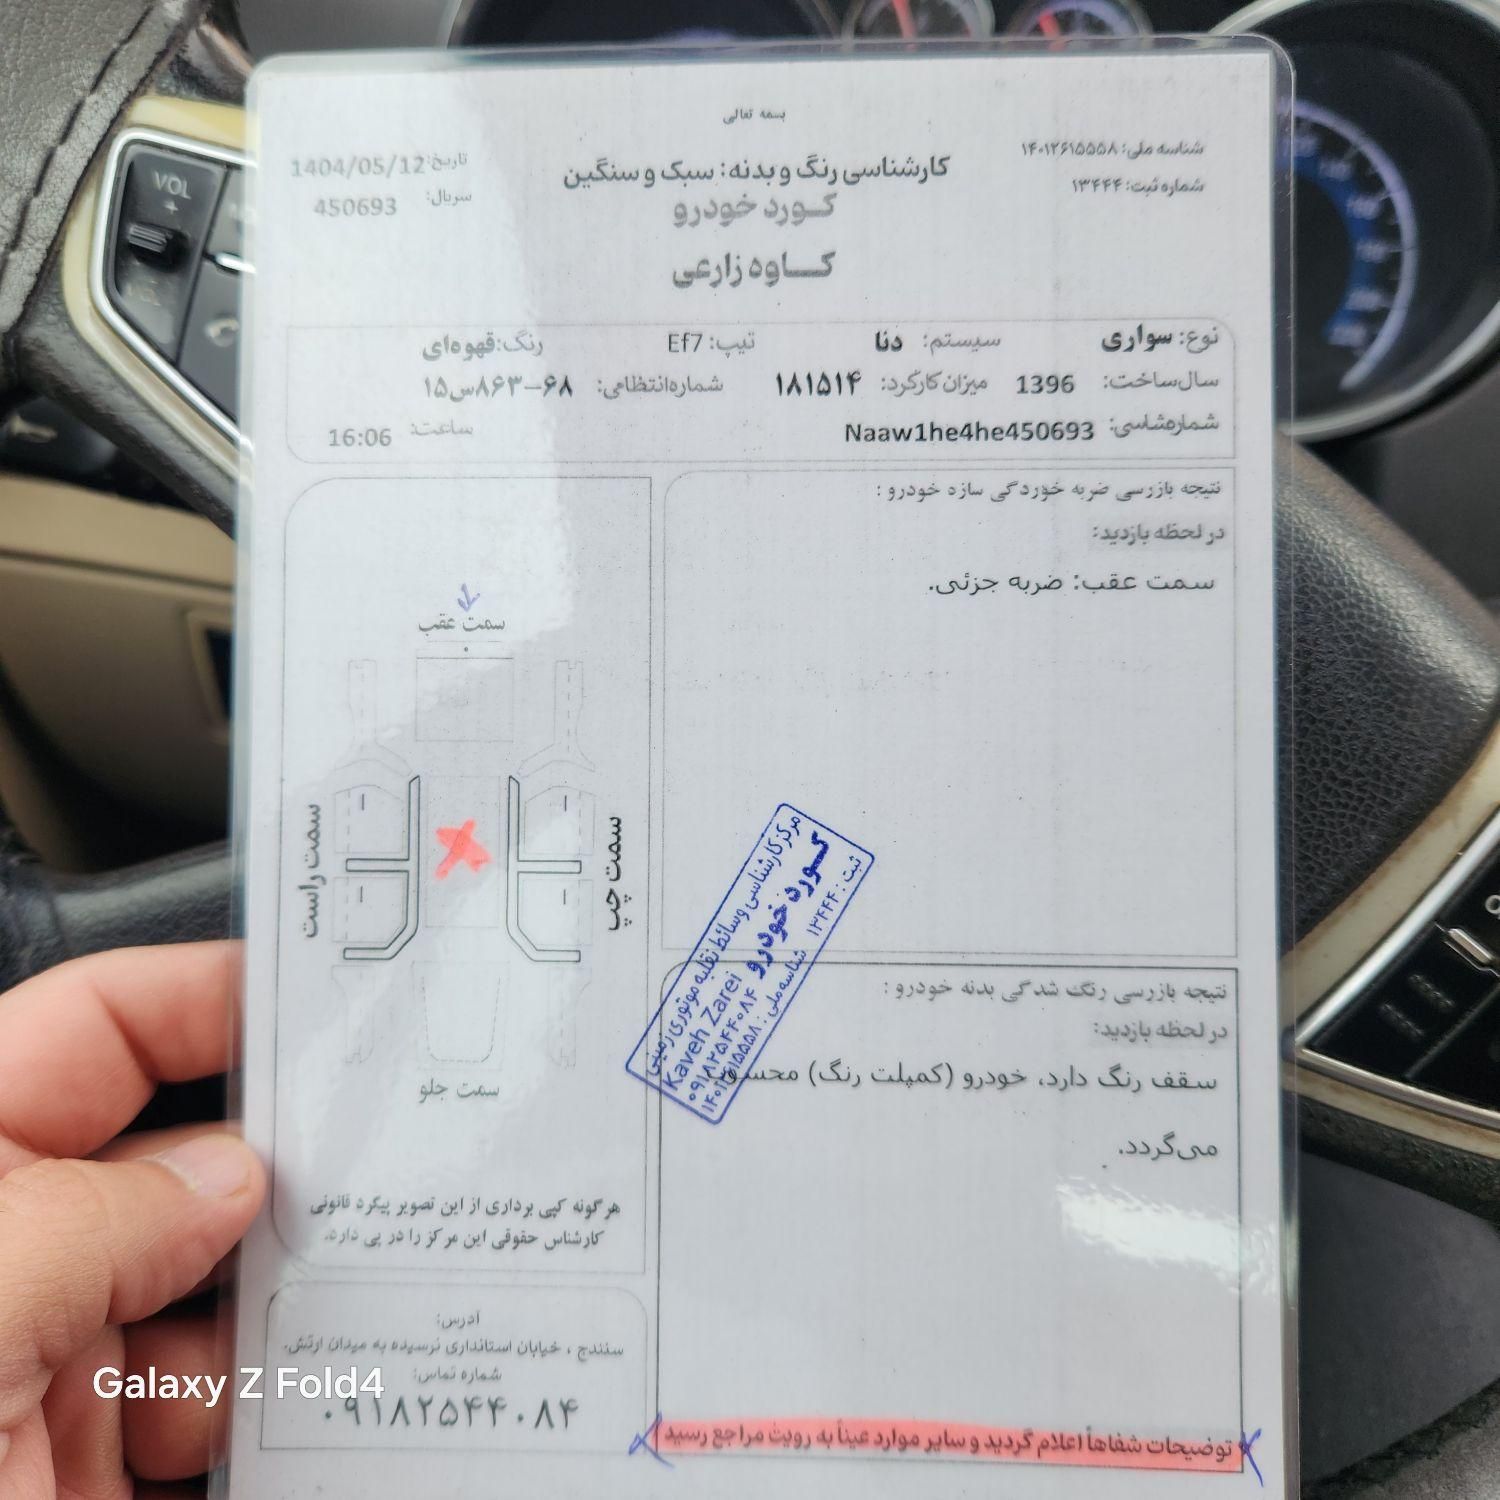 بسمه تعالی
شناسه ملی: ۱۴۰۱۲۶۱۵۵۵۸
شماره ثبت: ۱۳۴۴۴
کارشناسی رنگ و بدنه: سبک و سنگین
کورد خودرو
کاوه زارعی
تاریخ: 1404/05/12
سریال: 450693
نوع: سواری سیستم: دنا تیپ: Ef7 رنگ: قهوه‌ای
سال ساخت: 1396 میزان کارکرد: ۱۸۱۵۱۴ شماره انتظامی: ۶۸-۸۶۳س۱۵
شماره شاسی: Naaw1he4he450693 ساعت: 16:06
نتیجه بازرسی ضربه خوردگی سازه خودرو :
در لحظه بازدید:
سمت عقب: ضربه جزئی.
سمت عقب
سمت راست
سمت چپ
سمت جلو
مرکز کارشناسی وسائط نقلیه موتوری زمینی
کورد خودرو
Kaveh Zarei
۰۹۱۸۲۵۴۴۰۸۴
ثبت: ۱۳۴۴۴ شناسه ملی: ۱۴۰۱۲۶۱۵۵۵۸
نتیجه بازرسی رنگ شدگی بدنه خودرو :
در لحظه بازدید:
سقف رنگ دارد، خودرو (کمپلت رنگ) محسوب
می‌گردد.
هرگونه کپی برداری از این تصویر پیگرد قانونی
کارشناس حقوقی این مرکز را در پی دارد.
آدرس:
سنندج ، خیابان استانداری نرسیده به میدان ارتش.
شماره تماس:
۰۹۱۸۲۵۴۴۰۸۴
توضیحات شفاهاً اعلام گردید و سایر موارد عیناً به رویت مراجع رسید
VOL
+
Galaxy Z Fold4